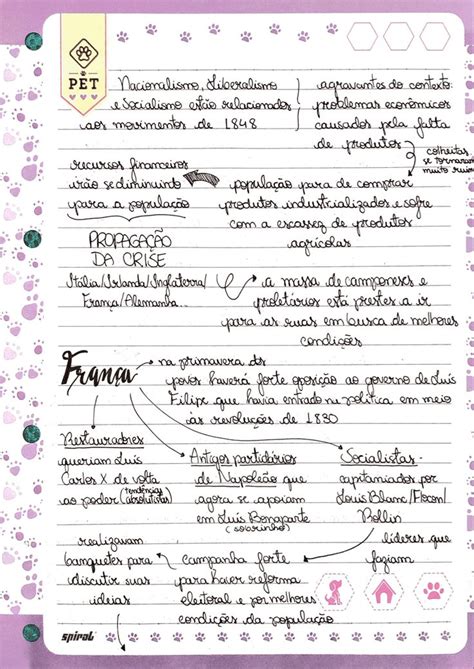 PET
Nacionalismo, Liberalismo
e Socialismo estão relacionados
aos movimentos de 1848
agravantes do contexto:
problemas econômicos
causados pela falta
de produtos
colheitas
se tornaram
muito ruins
recursos financeiros
irão se diminuindo
para a população
população para de comprar
produtos industrializados e sofre
com a escassez de produtos
agrícolas
PROPAGAÇÃO
DA CRISE
Itália/Irlanda/Inglaterra/
França/Alemanha...
a massa de camponeses e
proletários está prestes a ir
para as ruas em busca de melhores
condições
França
na primavera dos
povos haverá forte oposição ao governo de Luís
Filipe que havia entrado na política em meio
às revoluções de 1830
Restauradores
queriam Luís
Carlos X de volta
ao poder (tendências
absolutistas)
Antigos partidários
de Napoleão que
agora se apoiam
em Luís Bonaparte
(sobrinho)
Socialistas
capitaniados por
Louis Blanc/Flocon/
Rollin
realizavam
banquetes para
discutir suas
ideias
campanha forte
para haver reforma
eleitoral e por melhores
condições da população
líderes que
fogiam
spiral